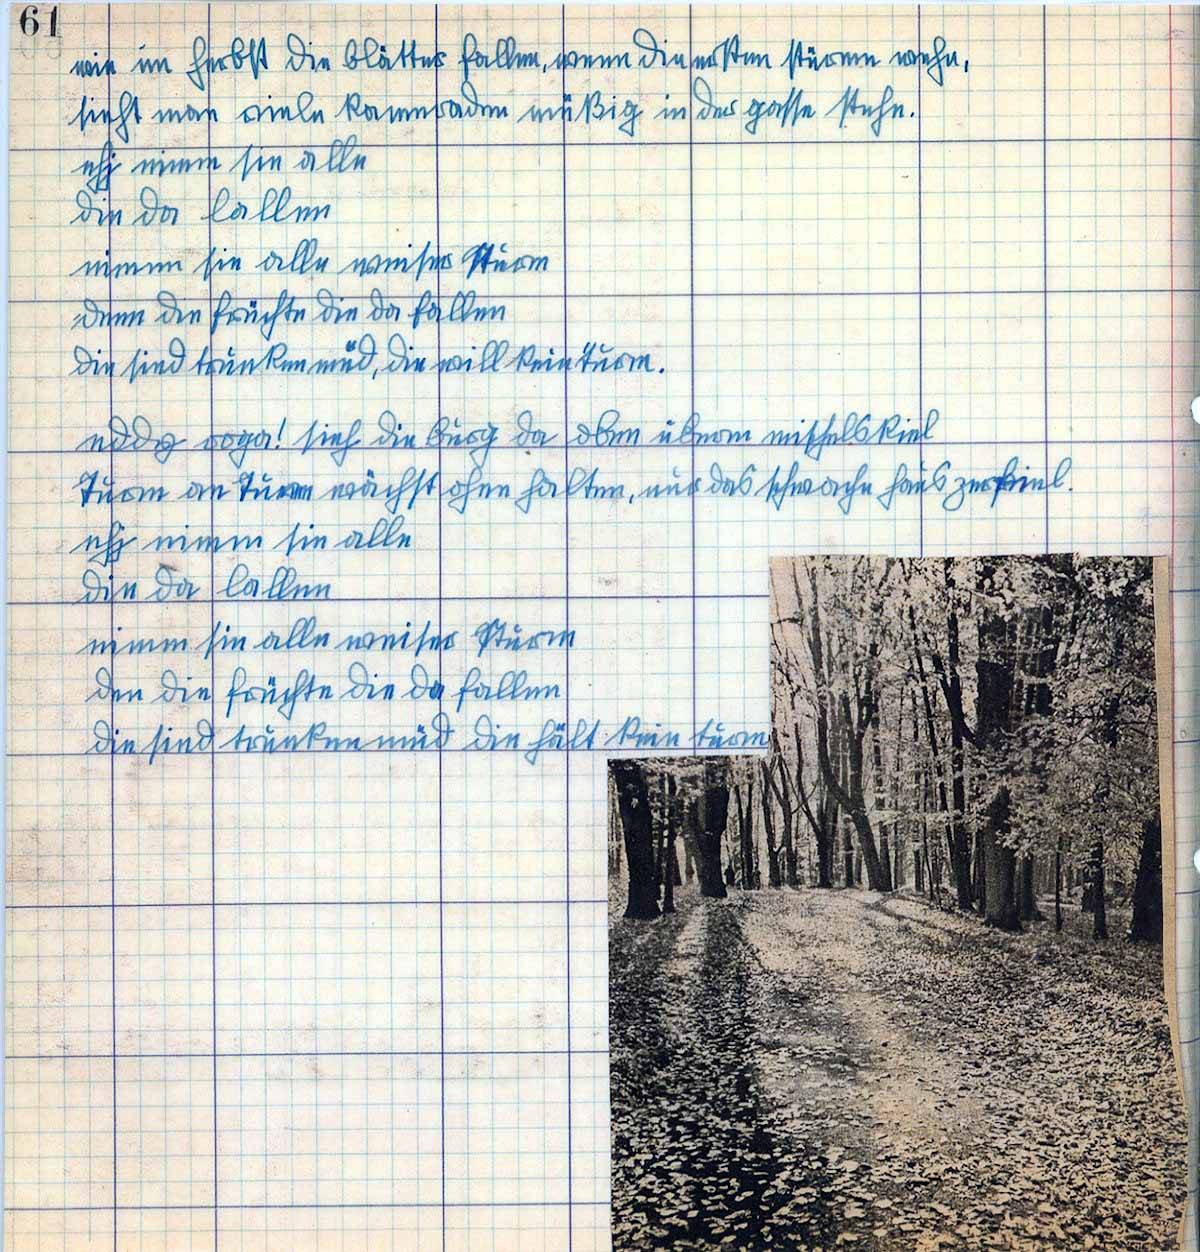 61
wie im herbst die blätter fallen, wenn die ersten stürme wehn,
sieht man viele kameraden müßig in der gasse stehn.
ehj nimm sie alle
die da lallen
nimm sie alle weiser Sturm
denn die früchte die da fallen
die sind trunken müd, die will kein Turm.
eddy voga! sieh die burg da oben überm mischelskiel
Turm an Turm wächst ohne halten, nur das schwache haus zerfiel.
ehj nimm sie alle
die da lallen
nimm sie alle weiser Sturm
den die früchte die da fallen
die sind trunken müd die hält kein turm